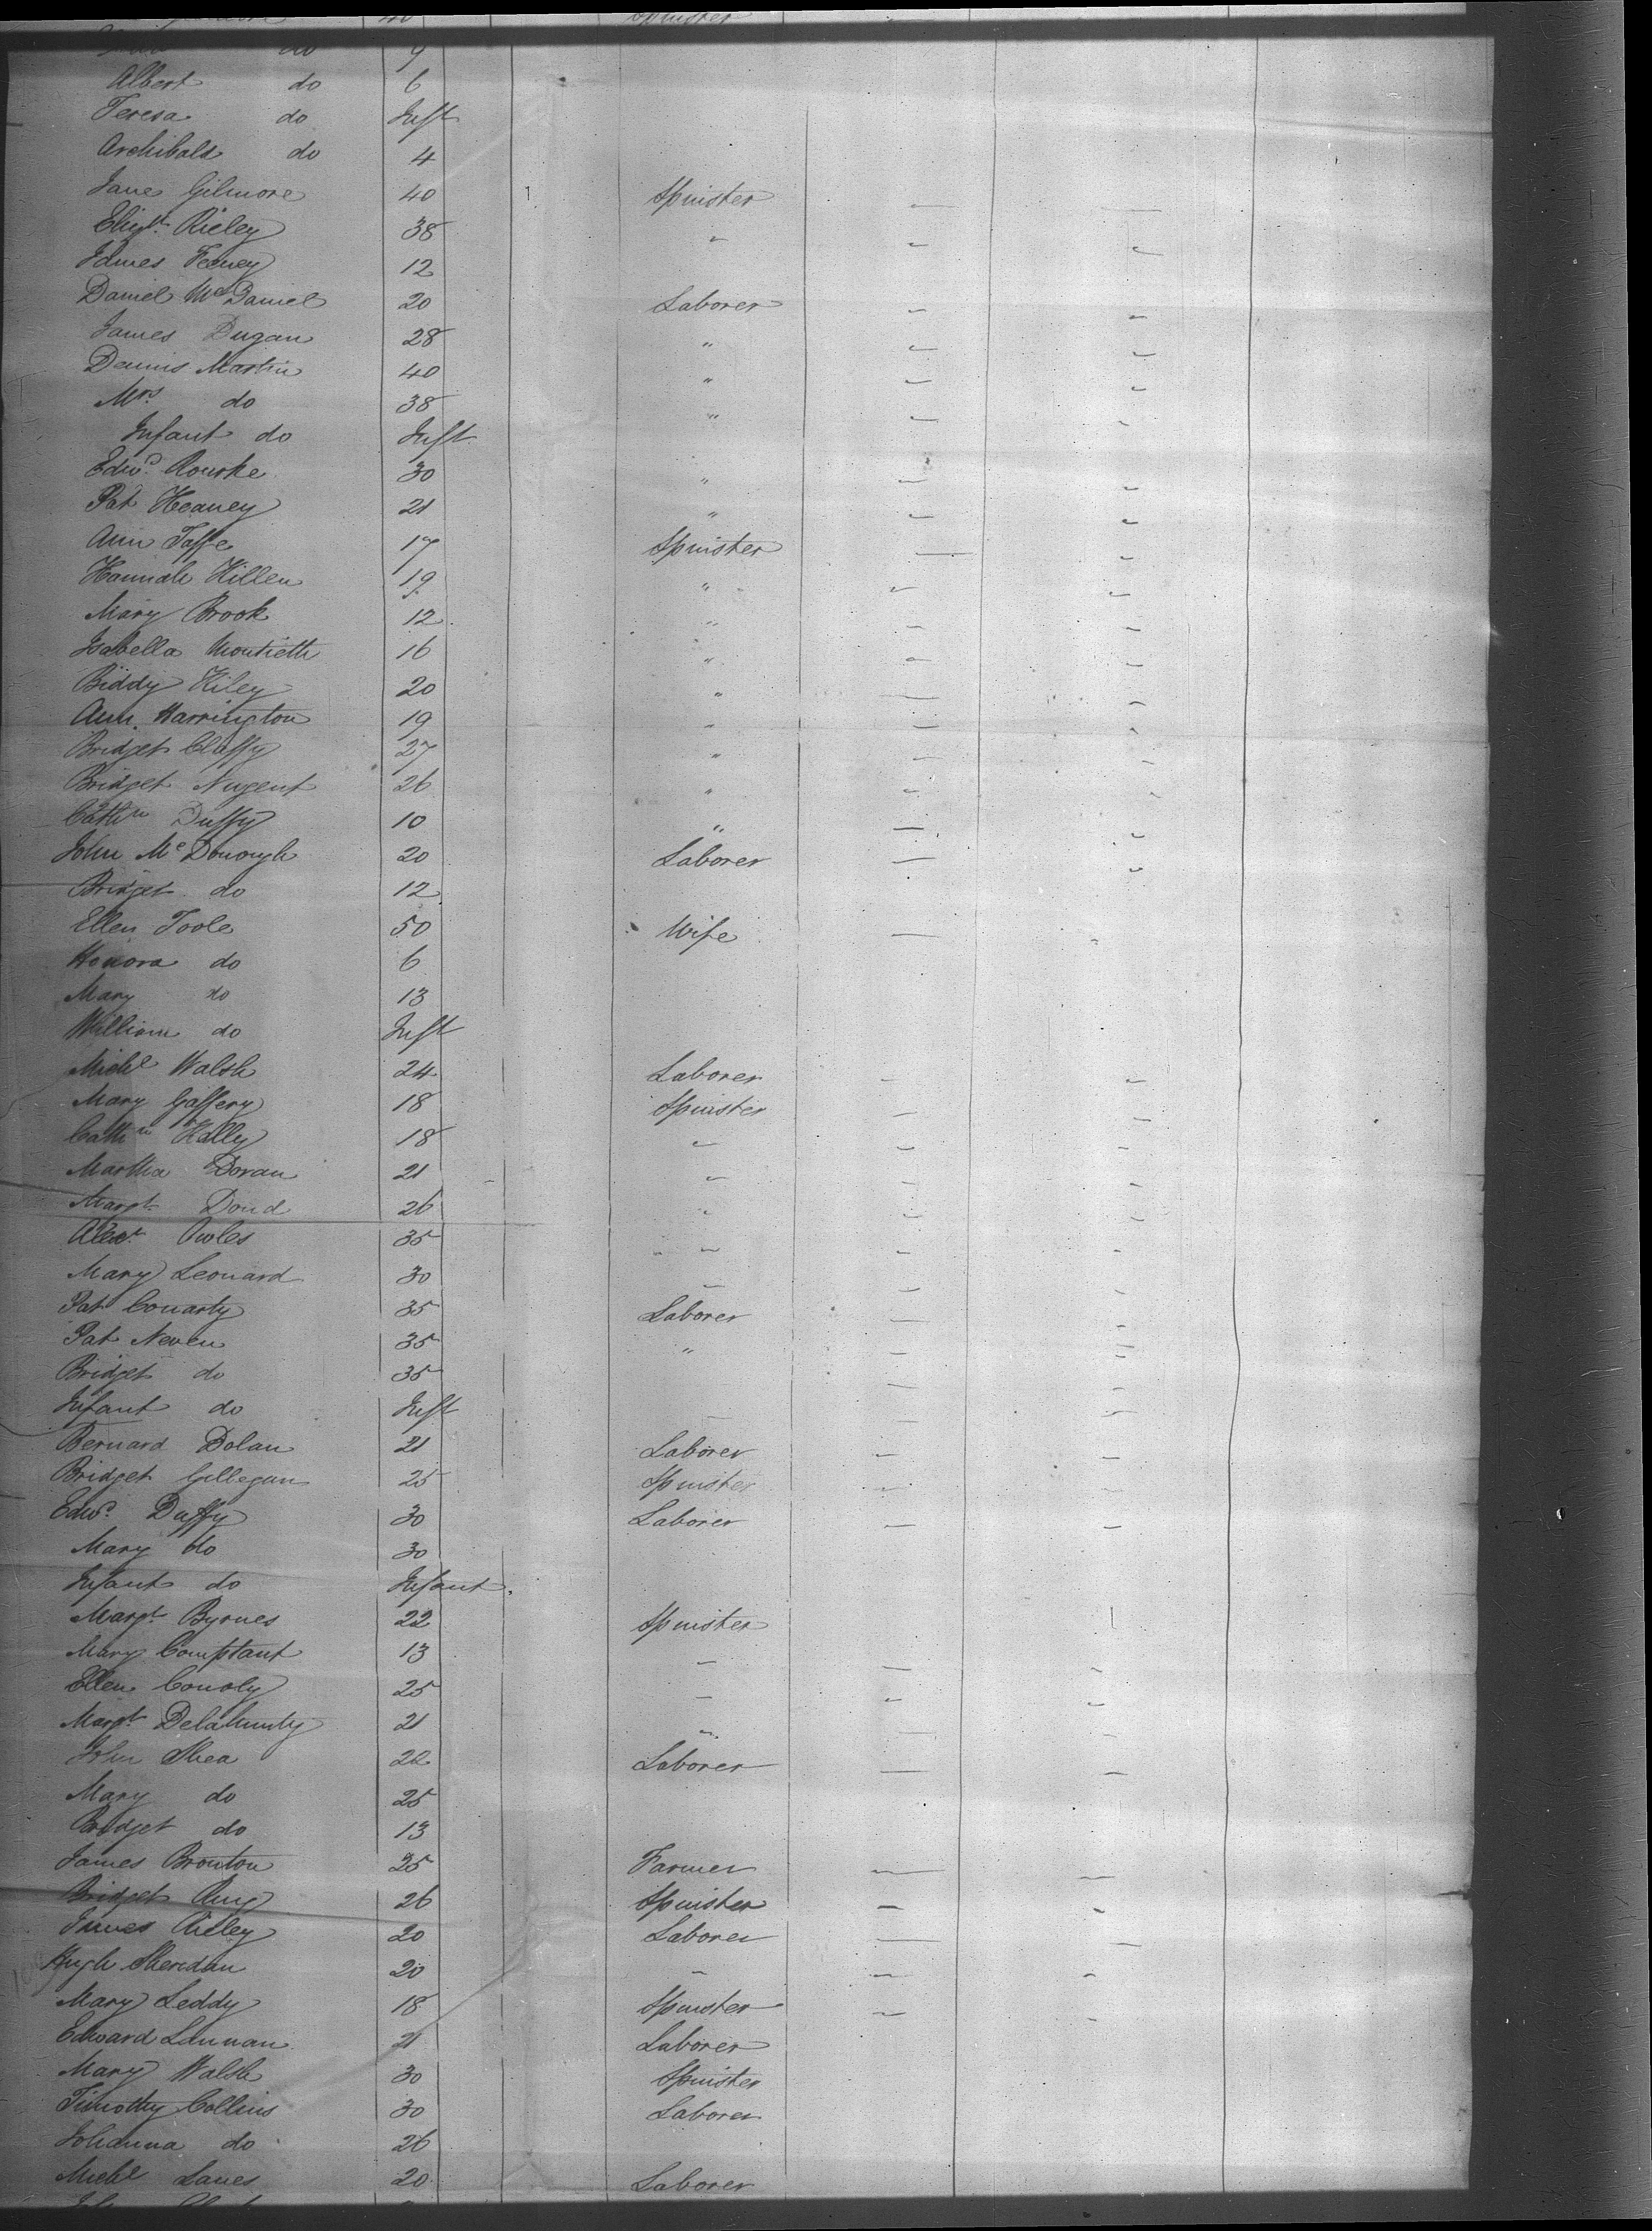 Spinster
do 9
Albert do 6
Teresa do Inft
Archibald do 4
Jane Gilmore 40 Spinster
Elizt. Rieley 38 "
James Feeney 12
Daniel McDaniel 20 Laborer
James Dugan 28 "
Dennis Martin 40 "
Mrs do 38 "
Infant do Inft
Edwd. Rourke 30 "
Pat Heaney 21 "
Ann Taffe 17 Spinster
Hannah Killen 19 "
Mary Brook 12 "
Isabella Montieth 16 "
Biddy Kiley 20 "
Ann Harrington 19 "
Bridget Claffy 27 "
Bridget Nugent 26 "
Cathn Duffy 10 "
John McDonough 20 Laborer
Bridget do 12
Ellen Toole 50 Wife
Honora do 6
Mary do 13
William do Inft
Michl Walsh 24 Laborer
Mary Gaffery 18 Spinster
Cathn Kelly 18 "
Martha Doran 21 "
Margt. Doud 26 "
Alexr. Owles 35 " "
Mary Leonard 30 "
Pat Conarty 35 Laborer
Pat Neven 35 "
Bridget do 35
Infant do Inft
Bernard Dolan 21 Laborer
Bridget Gillegan 25 Spinster
Edwd. Duffy 30 Laborer
Mary do 30
Infant do Infant
Margt. Byrnes 22 Spinster
Mary Comptant 13 "
Ellen Conoly 25 "
Margt. Delahunty 21 "
John Shea 22 Laborer
Mary do 25
Bridget do 13
James Bronton 25 Farmer
Bridget 26 Spinster
James Rieley 20 Laborer
Hugh Sheridan 20 "
Mary Leddy 18 Spinster
Edward Lannan 21 Laborer
Mary Walsh 30 Spinster
Timothy Collins 30 Laborer
Johanna do 26
Michl Lanes 20 Laborer